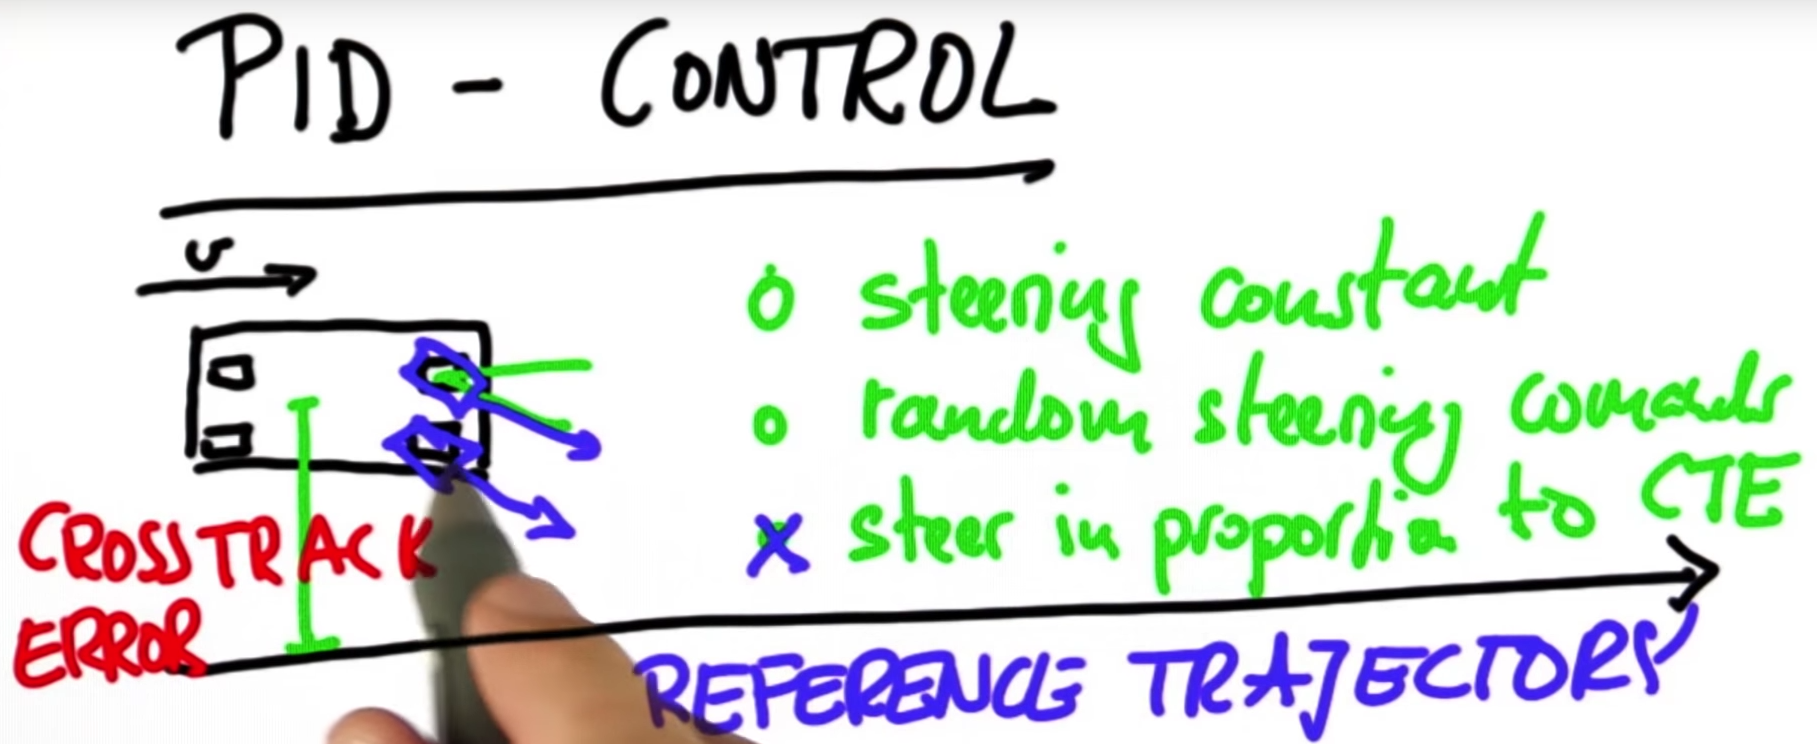 PID - CONTROL
v
o steering constant
o random steering comands
x steer in proportion to CTE
CROSSTRACK
ERROR
REFERENCE TRAJECTORY